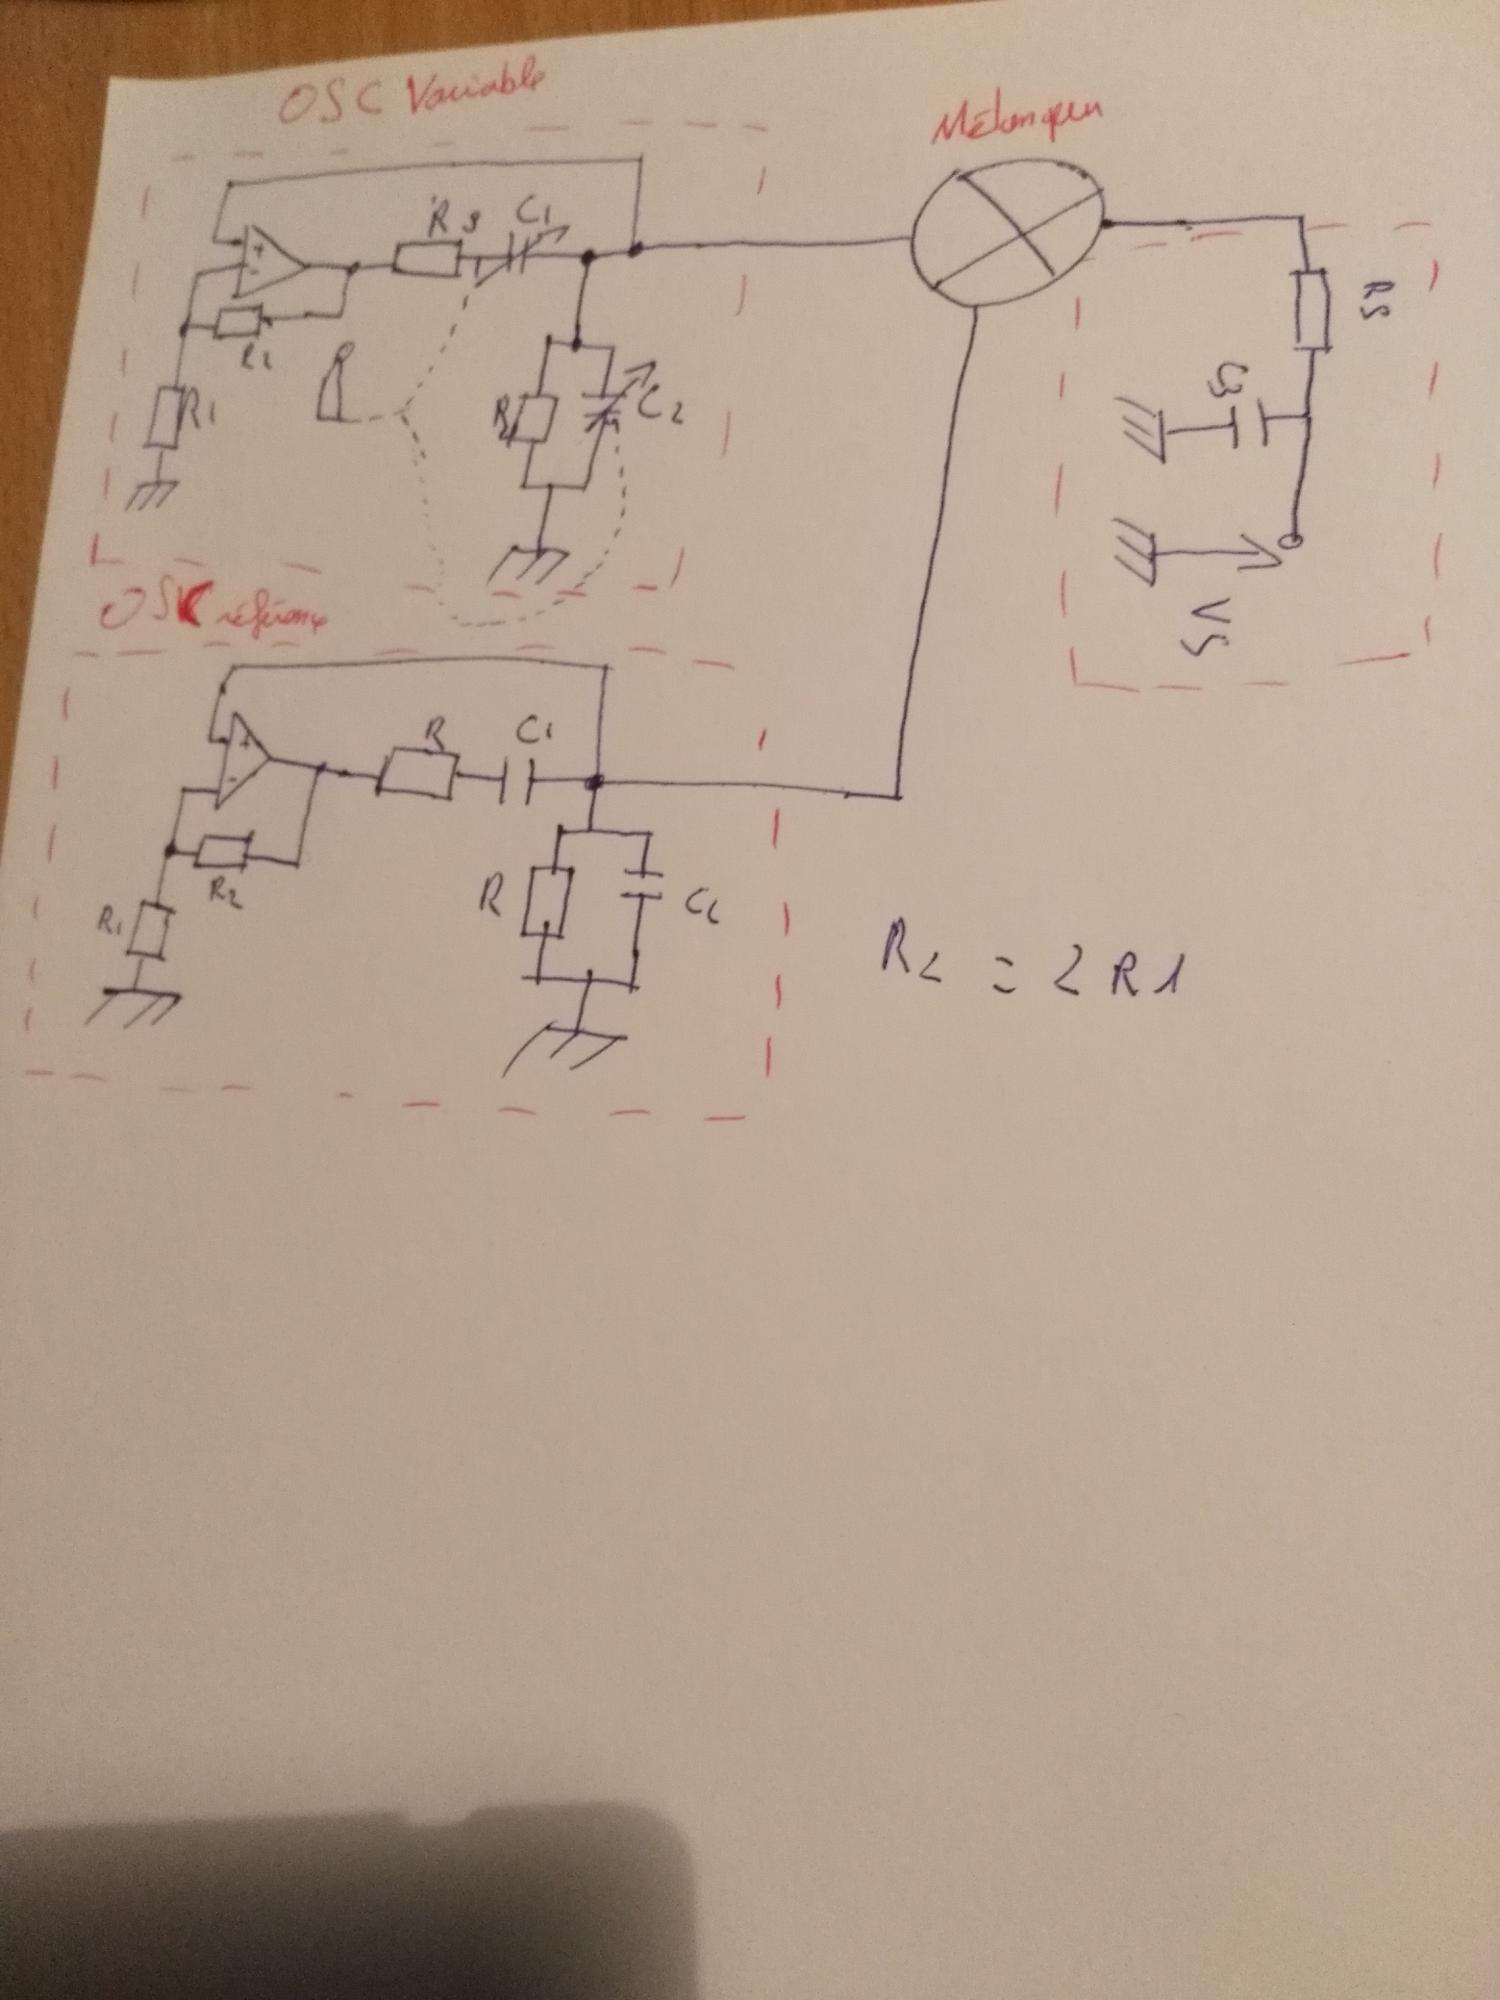 OSC Variable
Mélangeu
R 3
C1
+
-
R2
R1
R
C2
RS
C3
VS
OSC référence
+
-
R
C1
R2
R1
R
C2
R2 = 2 R1